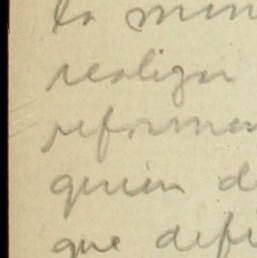 la min
realizar
reforma
quien d
que defi